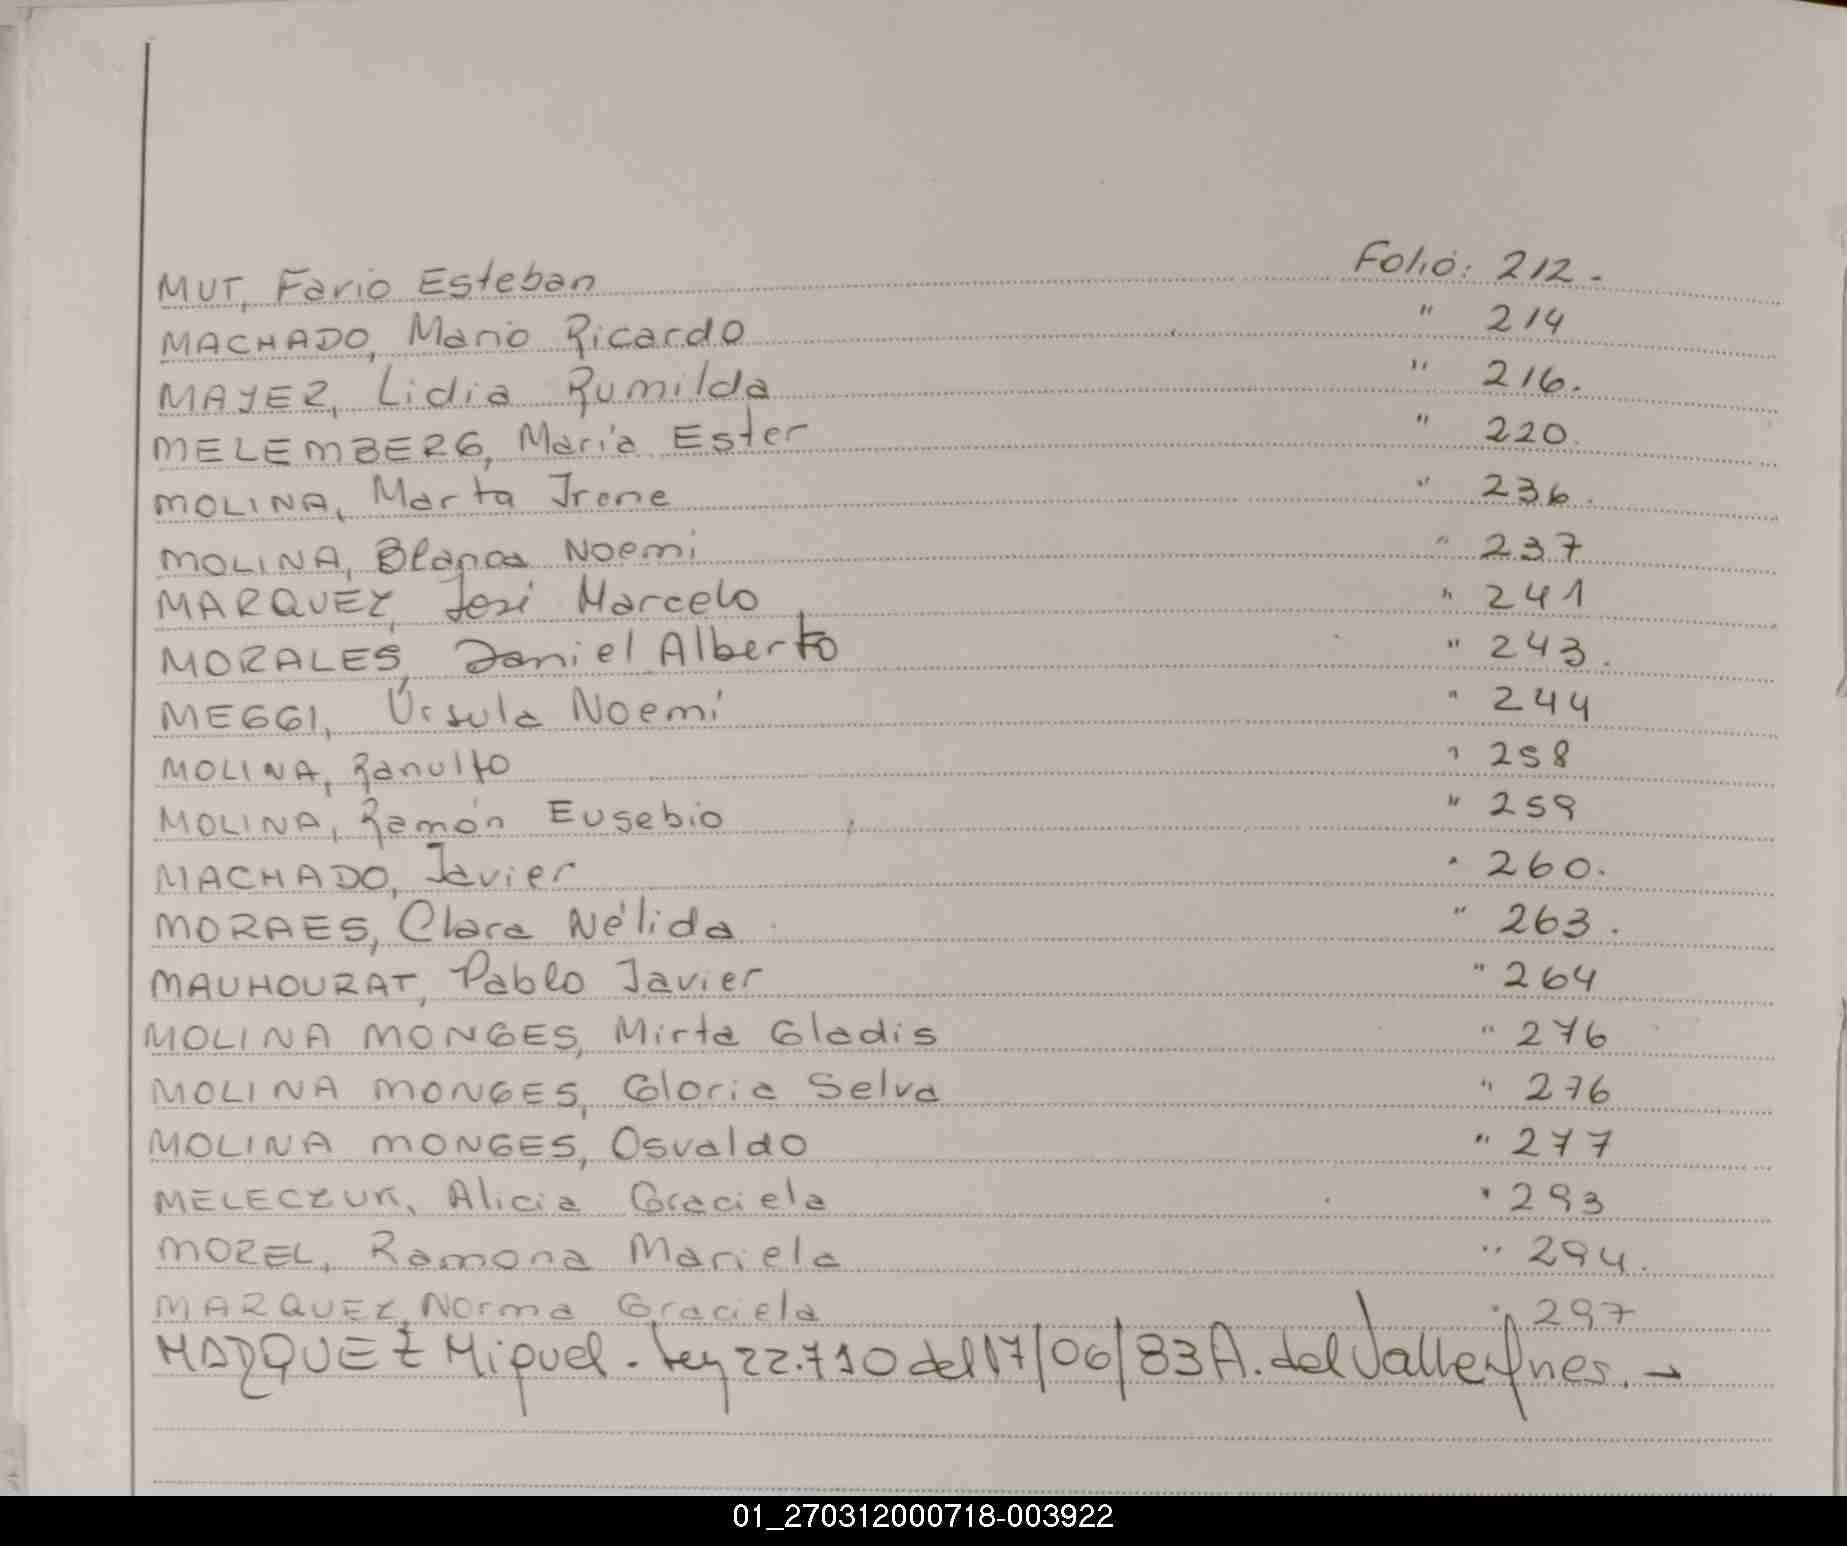 MUT, Fario Esteban Folio: 212.
MACHADO, Mario Ricardo " 214
MAYER, Lidia Rumilda " 216.
MELEMBERG, Maria Ester " 220.
MOLINA, Marta Irene " 236.
MOLINA, Blanca Noemi " 237
MARQUEZ, José Marcelo " 241
MORALES, Daniel Alberto " 243.
MEGGI, Úrsula Noemi " 244
MOLINA, Ranulfo " 258
MOLINA, Ramón Eusebio " 259
MACHADO, Javier " 260.
MORAES, Clara Nélida " 263.
MAUHOURAT, Pablo Javier " 264
MOLINA MONGES, Mirta Gladis " 276
MOLINA MONGES, Gloria Selva " 276
MOLINA MONGES, Osvaldo " 277
MELECZUK, Alicia Graciela " 293
MOREL, Ramona Mariela " 294.
MARQUEZ, Norma Graciela " 297
MARQUEZ Miguel - Ley 22.710 del 17/06/83 A. del Valle Ynes. -
01_270312000718-003922